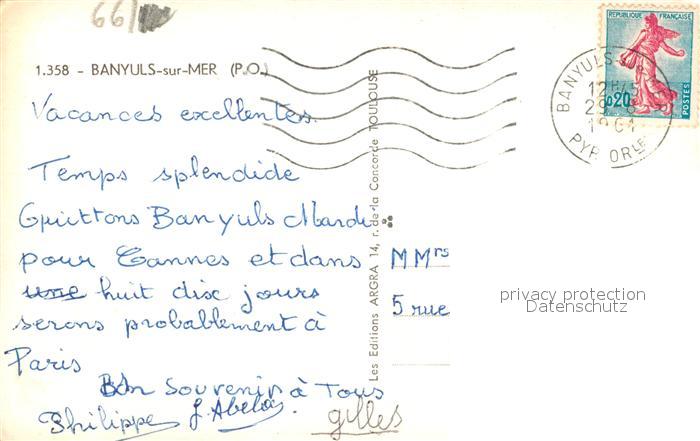 66
1.358 - BANYULS-sur-MER (P.O.)
Vacances excellentes.
Temps splendide
Quittons Banyuls Mardi
pour Cannes et dans
une huit dix jours
serons probablement à
Paris
Bon Souvenir à Tous
Philippe J. Abelois
gilles
Les Editions ARGRA 14, r. de la Concorde TOULOUSE
REPUBLIQUE FRANÇAISE
0,20
POSTES
BANYULS-S-
12H45
29-8
1961
PYR. ORLES
MMrs
5 rue
privacy protection
Datenschutz